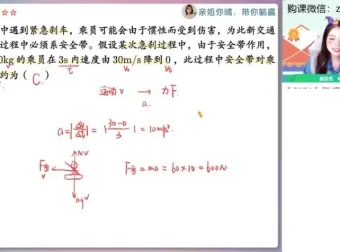 ☆☆
亲姐你晴，带你躺赢
购课微信：z
中遇到紧急刹车，乘员可能会由于惯性而受到伤害，为此新交通
过程中必须系安全带。假设某次急刹过程中，由于安全带作用，
0kg的乘员在3s内速度由30m/s降到0，此过程中安全带对乘
约为（ C. ）
t v₀ v
运动 v → 力 F.
a.
a = |Δv/Δt| = |30-0/3| = 10m/s².
N
F = ma = 60×10 = 600N
mg